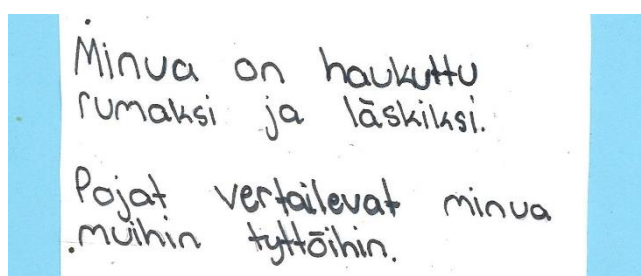 Minua on haukuttu
rumaksi ja läskiksi.
Pojat vertailevat minua
muihin tyttöihin.